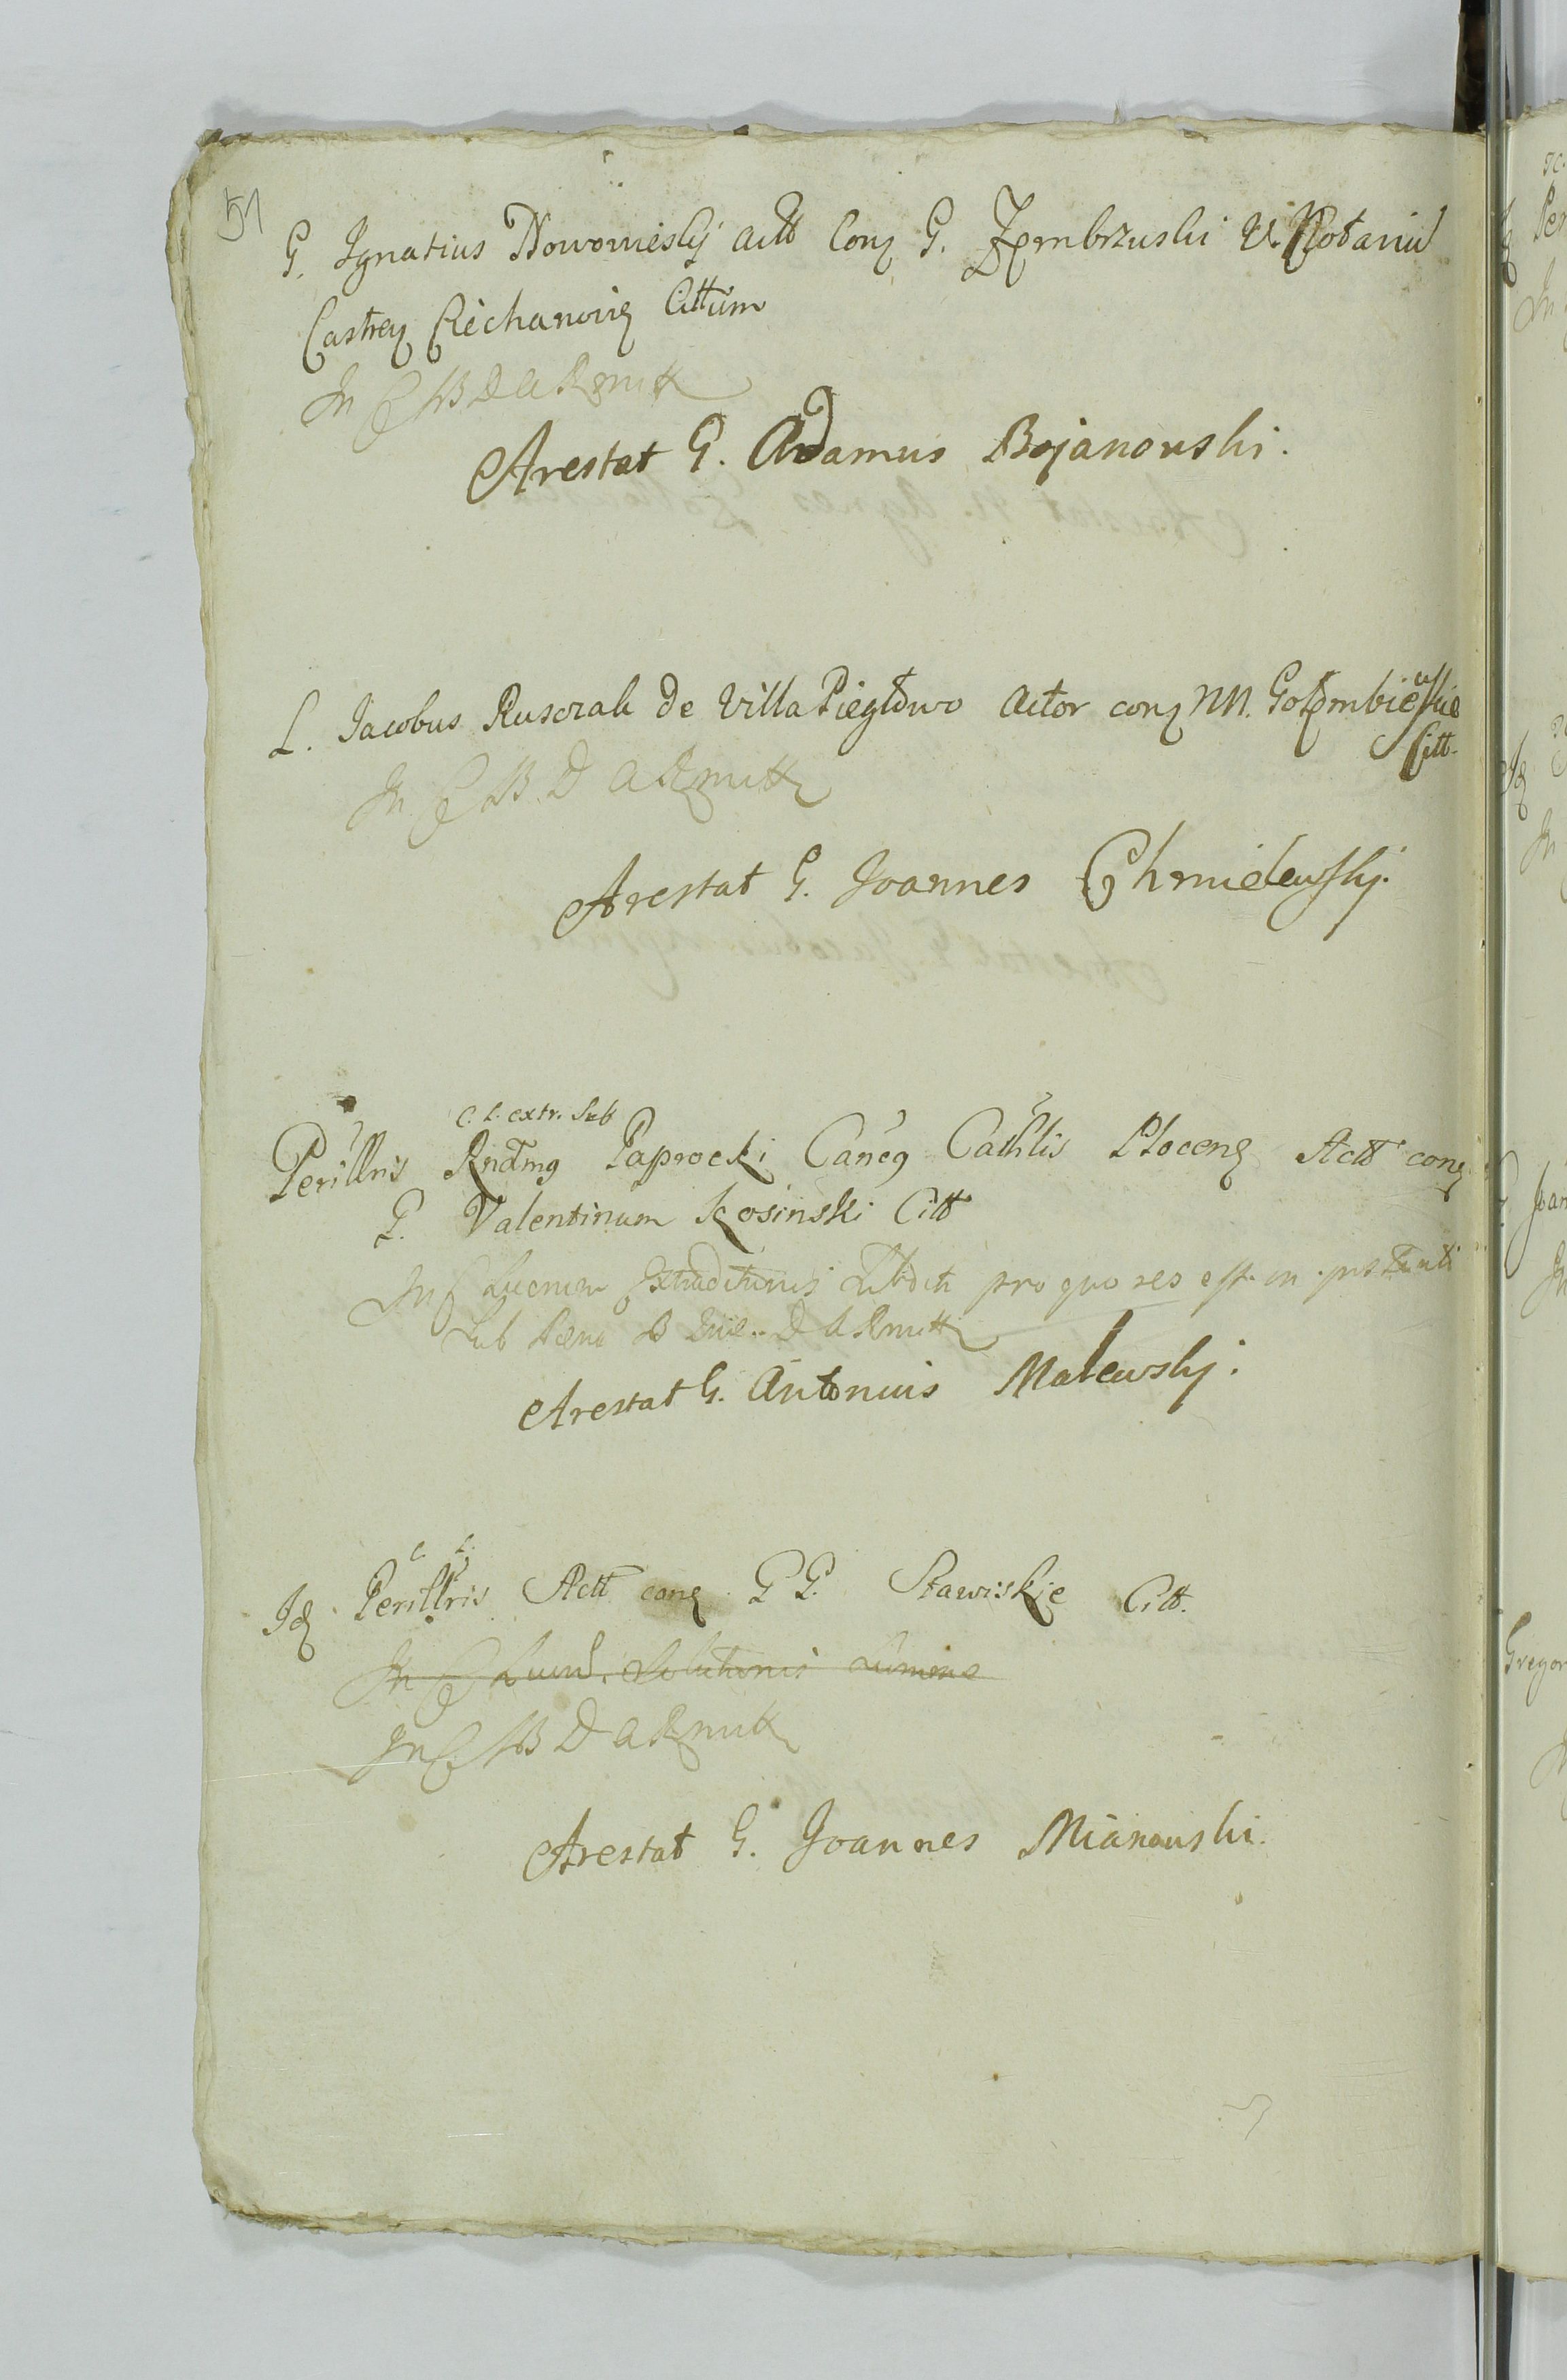 51
G. Ignatius Nowomieskj actt Conq G. Zembrzuski V. Notariu
Castreq Ciechanoviq Cittum
In C B D A Rmitt
Arestat G. Adamus Bojanowski.
L. Jacobus Rusczak de Villa Pieglowo Actor conq NN. Golembiewskie
Citt.
In C B. D A Rmitt
Arestat G. Joannes Chmielewskj.
C. L. extr. Sub
Perillris Rndmq Paprocki Caneq Cathlis Plocenq Actt conq
G. Valentinum Kosinski Citt
In C Lucrum Extraditionis pro quo reo est in instanti
Sub Paena B D A Rmitt
Arestat G. Antonius Malewskj.
C. L.
Idq Perillris Actt conq G G. Stawiskie Citt.
In C Lucrl. Solutionis Summae
In C. B D A Rmitt
Arestat G. Joannes Mianowski.